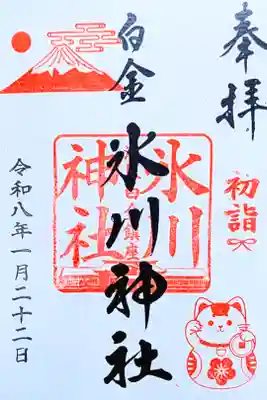 奉拝
初詣
白金
氷川神社
氷川
神社
令和八年一月二十二日